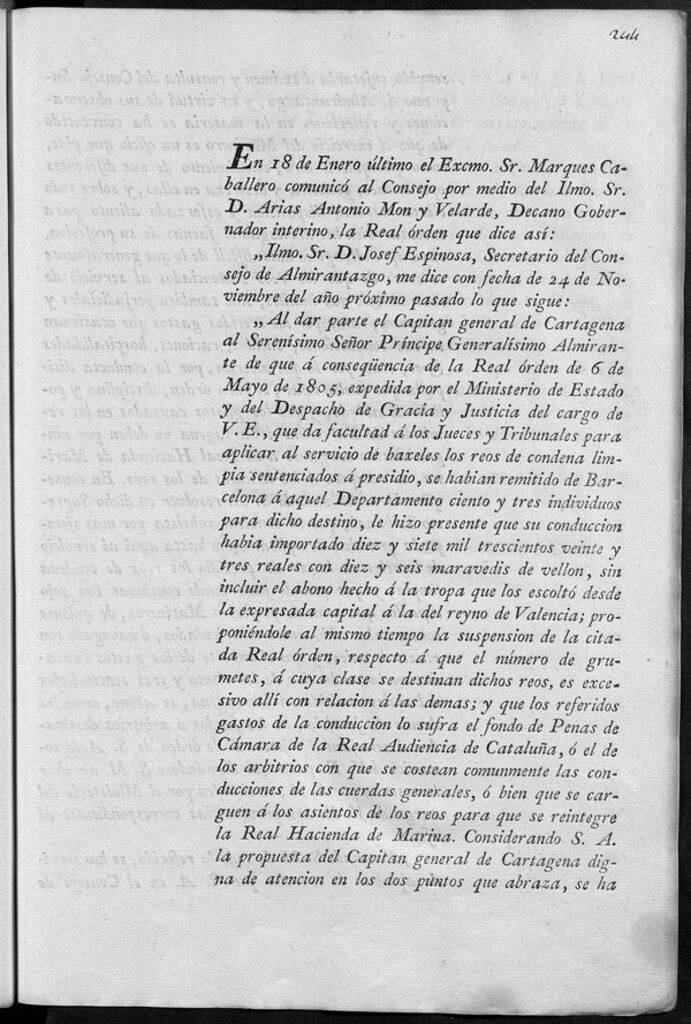 244
En 18 de Enero último el Excmo. Sr. Marques Ca-
ballero comunicó al Consejo por medio del Ilmo. Sr.
D. Arias Antonio Mon y Velarde, Decano Gober-
nador interino, la Real órden que dice así:
„Ilmo. Sr. D. Josef Espinosa, Secretario del Con-
sejo de Almirantazgo, me dice con fecha de 24 de No-
viembre del año próximo pasado lo que sigue:
„Al dar parte el Capitan general de Cartagena
al Serenísimo Señor Príncipe Generalísimo Almiran-
te de que á conseqüencia de la Real órden de 6 de
Mayo de 1805, expedida por el Ministerio de Estado
y del Despacho de Gracia y Justicia del cargo de
V. E., que da facultad á los Jueces y Tribunales para
aplicar al servicio de baxeles los reos de condena lim-
pia sentenciados á presidio, se habian remitido de Bar-
celona á aquel Departamento ciento y tres individuos
para dicho destino, le hizo presente que su conduccion
habia importado diez y siete mil trescientos veinte y
tres reales con diez y seis maravedis de vellon, sin
incluir el abono hecho á la tropa que los escoltó desde
la expresada capital á la del reyno de Valencia; pro-
poniéndole al mismo tiempo la suspension de la cita-
da Real órden, respecto á que el número de gru-
metes, á cuya clase se destinan dichos reos, es exce-
sivo allí con relacion á las demas; y que los referidos
gastos de la conduccion lo sufra el fondo de Penas de
Cámara de la Real Audiencia de Cataluña, ó el de
los arbitrios con que se costean comunmente las con-
ducciones de las cuerdas generales, ó bien que se car-
guen á los asientos de los reos para que se reintegre
la Real Hacienda de Marina. Considerando S. A.
la propuesta del Capitan general de Cartagena dig-
na de atencion en los dos puntos que abraza, se ha